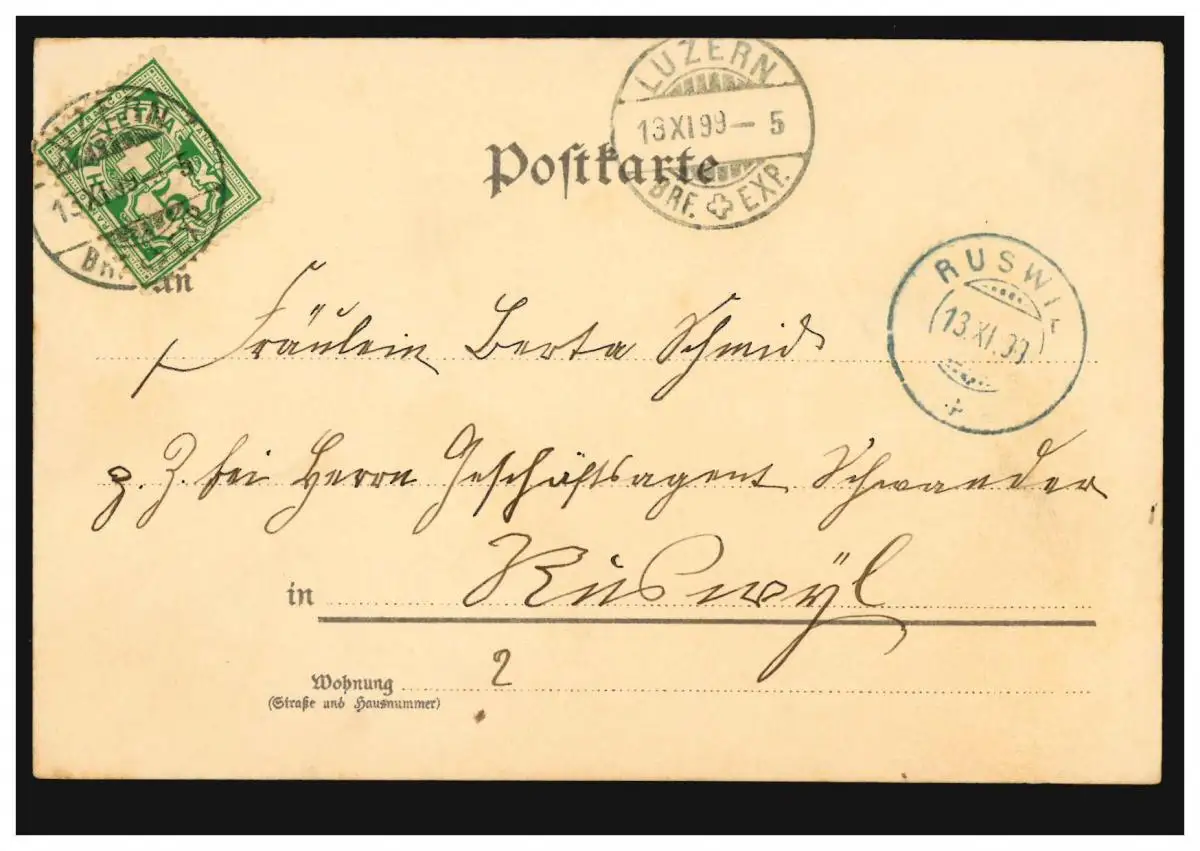 LUZERN
13 XI 99 – 5
BRF. EXP.
Postkarte
FRANCO
HELVETIA
5
13 XI 99 – 5
BRF.
RUSWIL
13.XI.99
An
Fräulein Berta Schmid
z. Z. bei Herrn Geschäftsagent Schwander
in Ruswyl
2
Wohnung
(Straße und Hausnummer)